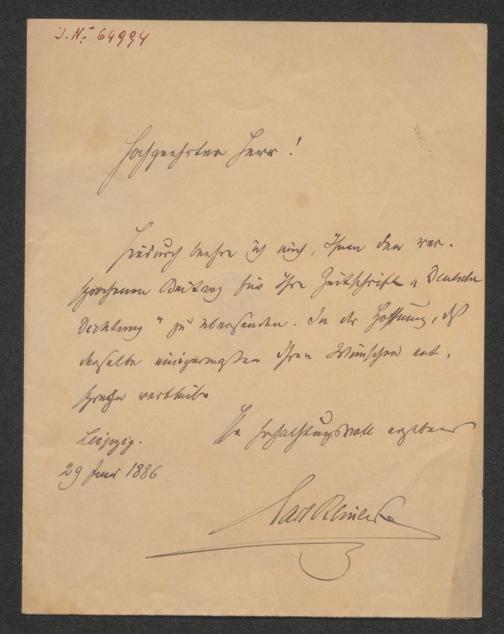 J. N. 64994
Hochgeehrter Herr!
Hiedurch beehre ich mich, Ihnen den ver-
sprochenen Beitrag für Ihre Zeitschrift „Deutsche
Dichtung" zu übersenden. In der Hoffnung, daß
derselbe einigermaßen Ihren Wünschen ent-
spreche verbleibe
In hochachtungsvoll ergeben
Leipzig.
29 1886
Carl Reinecke